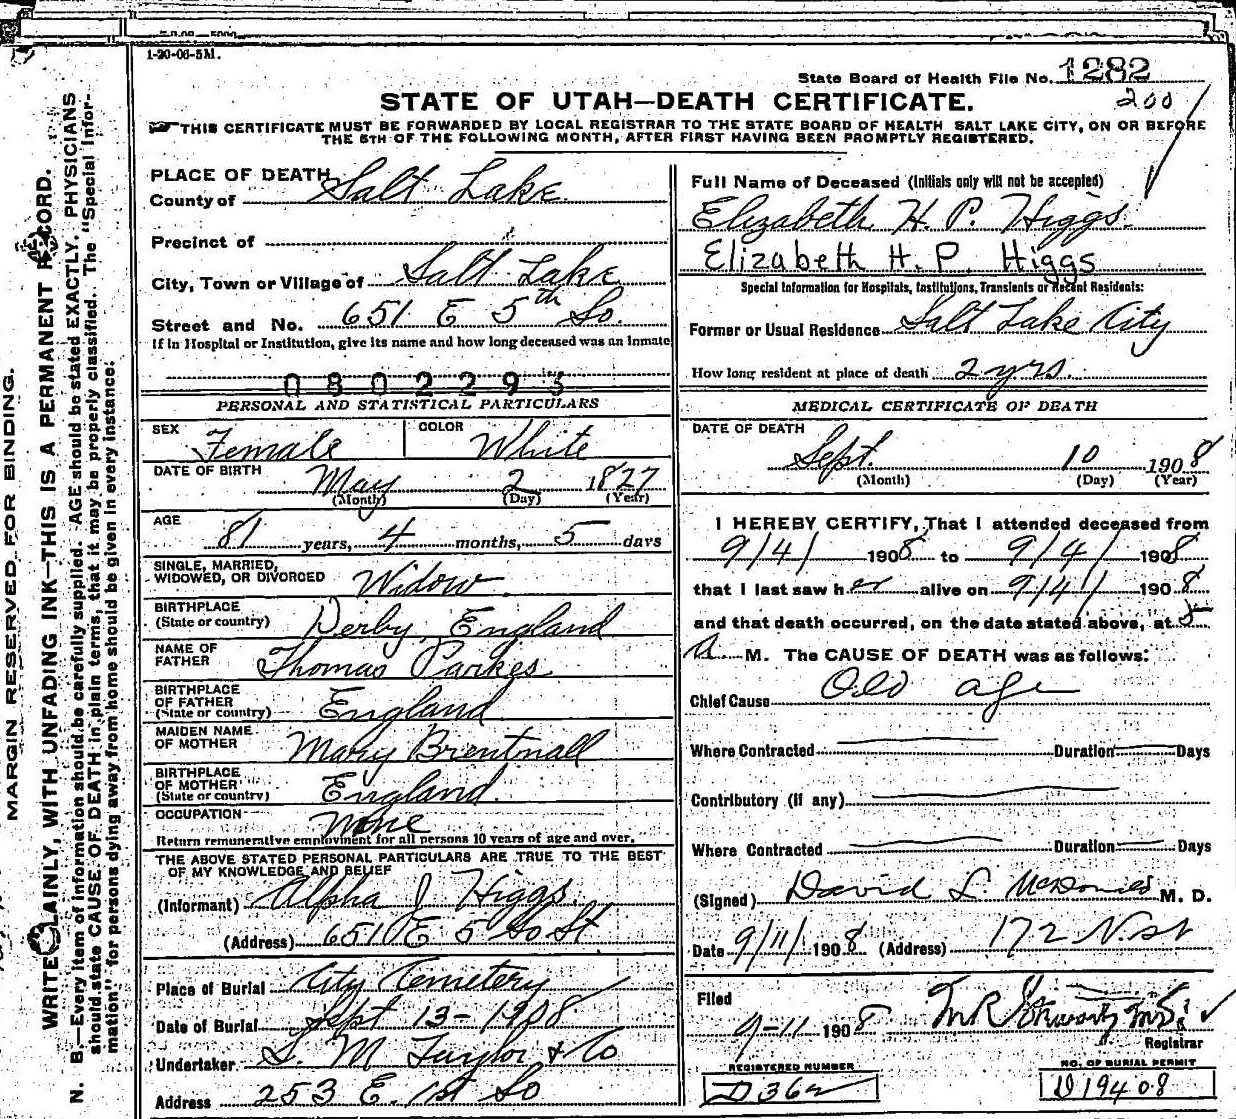 1-20-06-5M.
State Board of Health File No. 1282
STATE OF UTAH—DEATH CERTIFICATE.
200
THIS CERTIFICATE MUST BE FORWARDED BY LOCAL REGISTRAR TO THE STATE BOARD OF HEALTH SALT LAKE CITY, ON OR BEFORE
THE 5TH OF THE FOLLOWING MONTH, AFTER FIRST HAVING BEEN PROMPTLY REGISTERED.
PLACE OF DEATH
County of Salt Lake
Precinct of
City, Town or Village of Salt Lake
Street and No. 651 E 5th So.
If in Hospital or Institution, give its name and how long deceased was an inmate
0802293
PERSONAL AND STATISTICAL PARTICULARS
SEX Female COLOR White
DATE OF BIRTH May 2 1827
(Month) (Day) (Year)
AGE 81 years, 4 months, 5 days
SINGLE, MARRIED,
WIDOWED, OR DIVORCED Widow
BIRTHPLACE
(State or country) Derby, England
NAME OF
FATHER Thomas Parkes
BIRTHPLACE
OF FATHER
(State or country) England
MAIDEN NAME
OF MOTHER Mary Brentnall
BIRTHPLACE
OF MOTHER
(State or country) England.
OCCUPATION None
Return remunerative employment for all persons 10 years of age and over.
THE ABOVE STATED PERSONAL PARTICULARS ARE TRUE TO THE BEST
OF MY KNOWLEDGE AND BELIEF
(Informant) Alpha J Higgs
(Address) 651 E 5 So St
Place of Burial City Cemetery
Date of Burial Sept 13-1908
Undertaker S. M Taylor & Co
Address 253 E. 1st So
Full Name of Deceased (Initials only will not be accepted)
Elizabeth H. P. Higgs.
Elizabeth H. P. Higgs
Special Information for Hospitals, Institutions, Transients or Recent Residents:
Former or Usual Residence Salt Lake City
How long resident at place of death 2 yrs.
MEDICAL CERTIFICATE OF DEATH
DATE OF DEATH
Sept. 10 1908
(Month) (Day) (Year)
I HEREBY CERTIFY, That I attended deceased from
9/4/ 1908 to 9/4/ 1908
that I last saw her alive on 9/4/ 1908
and that death occurred, on the date stated above, at 5
A M. The CAUSE OF DEATH was as follows:
Chief Cause Old age
Where Contracted Duration Days
Contributory (if any)
Where Contracted Duration Days
(Signed) David L. McDonald M. D.
Date 9/11/ 1908 (Address) 172 N. St
Filed
9-11 1908
Registrar
REGISTERED NUMBER
D362
NO. OF BURIAL PERMIT
D19408
MARGIN RESERVED FOR BINDING.
WRITE PLAINLY, WITH UNFADING INK—THIS IS A PERMANENT RECORD.
N. B.—Every item of information should be carefully supplied. AGE should be stated EXACTLY. PHYSICIANS
should state CAUSE OF DEATH in plain terms, that it may be properly classified. The "Special Infor-
mation" for persons dying away from home should be given in every instance.